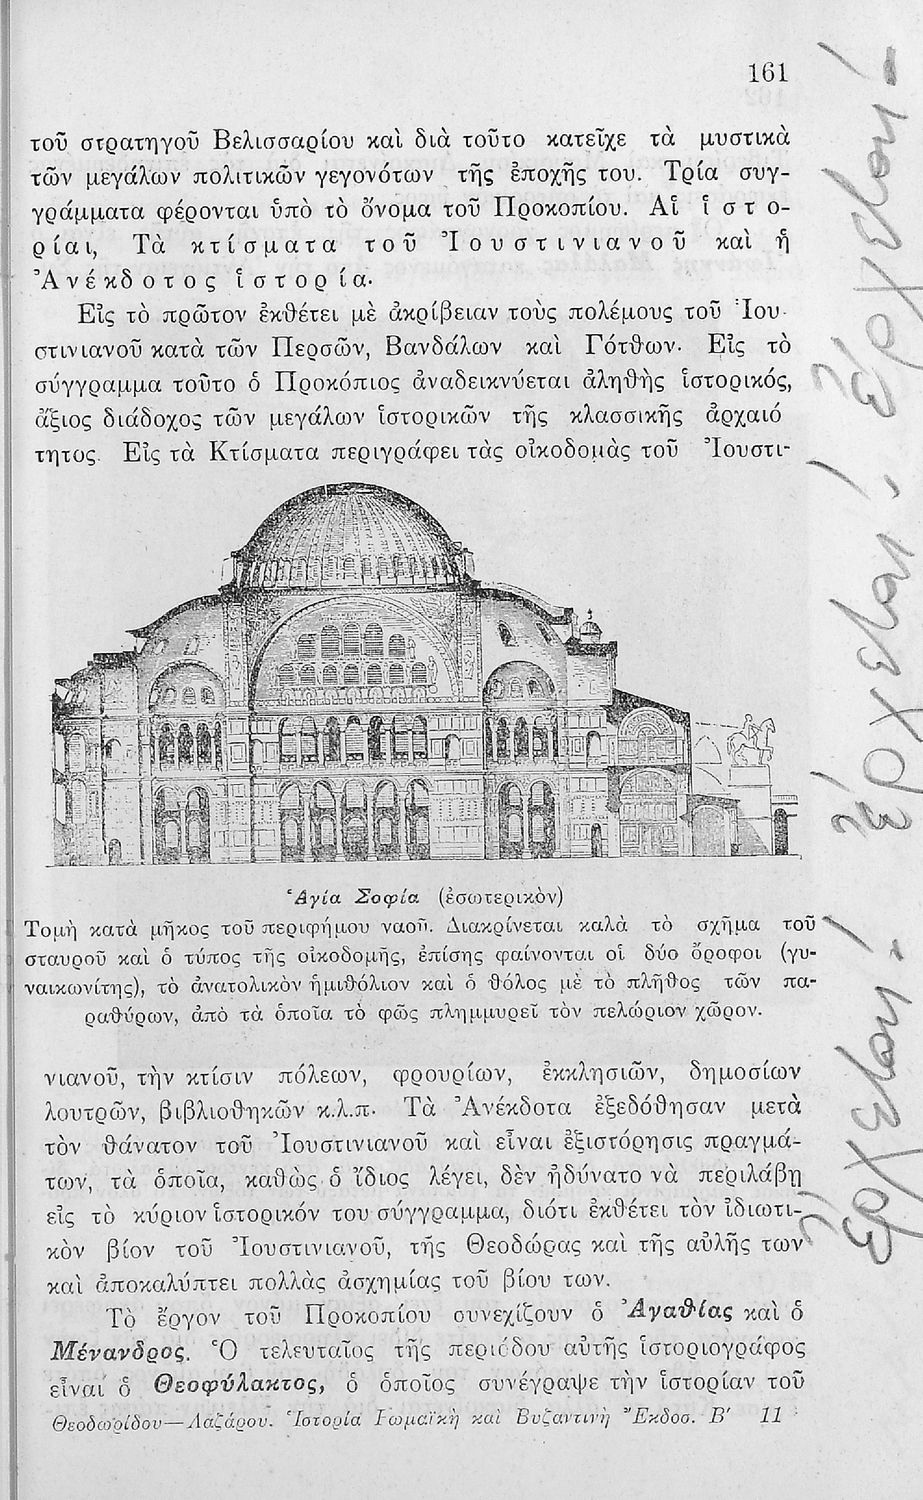 161
τοῦ στρατηγοῦ Βελισσαρίου καὶ διὰ τοῦτο κατεῖχε τὰ μυστικὰ
τῶν μεγάλων πολιτικῶν γεγονότων τῆς ἐποχῆς του. Τρία συγ-
γράμματα φέρονται ὑπὸ τὸ ὄνομα τοῦ Προκοπίου. Αἱ ἱστο-
ρίαι, Τὰ κτίσματα τοῦ Ἰουστινιανοῦ καὶ ἡ
Ἀνέκδοτος ἱστορία.
Εἰς τὸ πρῶτον ἐκθέτει μὲ ἀκρίβειαν τοὺς πολέμους τοῦ Ἰου-
στινιανοῦ κατὰ τῶν Περσῶν, Βανδάλων καὶ Γότθων. Εἰς τὸ
σύγγραμμα τοῦτο ὁ Προκόπιος ἀναδεικνύεται ἀληθὴς ἱστορικός,
ἄξιος διάδοχος τῶν μεγάλων ἱστορικῶν τῆς κλασσικῆς ἀρχαιό
τητος. Εἰς τὰ Κτίσματα περιγράφει τὰς οἰκοδομὰς τοῦ Ἰουστι-
Ἁγία Σοφία (ἐσωτερικὸν)
Τομὴ κατὰ μῆκος τοῦ περιφήμου ναοῦ. Διακρίνεται καλὰ τὸ σχῆμα τοῦ
σταυροῦ καὶ ὁ τύπος τῆς οἰκοδομῆς, ἐπίσης φαίνονται οἱ δύο ὄροφοι (γυ-
ναικωνίτης), τὸ ἀνατολικὸν ἡμιθόλιον καὶ ὁ θόλος μὲ τὸ πλῆθος τῶν πα-
ραθύρων, ἀπὸ τὰ ὁποῖα τὸ φῶς πλημμυρεῖ τὸν πελώριον χῶρον.
νιανοῦ, τὴν κτίσιν πόλεων, φρουρίων, ἐκκλησιῶν, δημοσίων
λουτρῶν, βιβλιοθηκῶν κ.λ.π. Τὰ Ἀνέκδοτα ἐξεδόθησαν μετὰ
τὸν θάνατον τοῦ Ἰουστινιανοῦ καὶ εἶναι ἐξιστόρησις πραγμά-
των, τὰ ὁποῖα, καθὼς ὁ ἴδιος λέγει, δὲν ἠδύνατο νὰ περιλάβῃ
εἰς τὸ κύριον ἱστορικόν του σύγγραμμα, διότι ἐκθέτει τὸν ἰδιωτι-
κὸν βίον τοῦ Ἰουστινιανοῦ, τῆς Θεοδώρας καὶ τῆς αὐλῆς των
καὶ ἀποκαλύπτει πολλὰς ἀσχημίας τοῦ βίου των.
Τὸ ἔργον τοῦ Προκοπίου συνεχίζουν ὁ Ἀγαθίας καὶ ὁ
Μένανδρος. Ὁ τελευταῖος τῆς περιόδου αὐτῆς ἱστοριογράφος
εἶναι ὁ Θεοφύλακτος, ὁ ὁποῖος συνέγραψε τὴν ἱστορίαν τοῦ
Θεοδωρίδου—Λαζάρου. Ἱστορία Ρωμαϊκὴ καὶ Βυζαντινὴ Ἔκδοσ. Β′ 11
ἔρχεται! ἔρχεται! ἔρχεται!